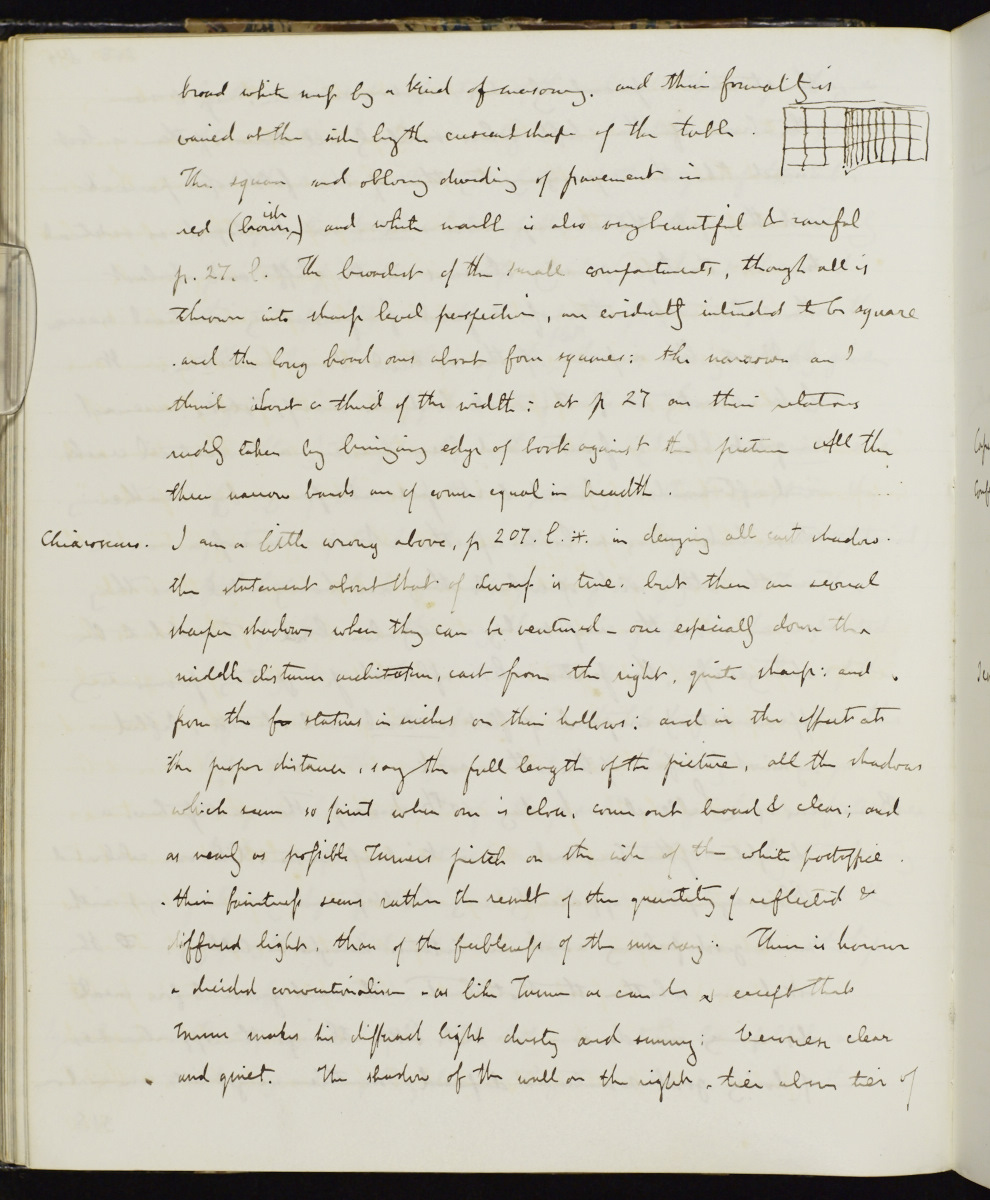 broad white         by a kind of measuring. and their formality is
varied at the side by the crescent shape of the table.
The square and oblong dividing of pavement in
red (brownish) and white marble is also very beautiful & careful
p. 27. l. The broadest of the small compartments, though all is
thrown into sharp level perspective, are evidently intended to be square
and the long broad ones about four squares: the narrower are I
think about a third of the width: at p 27 are their relations
rudely taken by bringing edge of book against the picture All the
three narrow bands are of course equal in breadth.
Chiaroscuro. I am a little wrong above, p 207. l. in denying all cast shadows.
the statement about that of dwarf is true. but there are several
sharper shadows when they can be ventured - one especially down the
middle distance architecture, cast from the right, quite sharp: and
from the fo statues in niches on their hollows: and in the effect at
the proper distance, say the full length of the picture, all the shadows
which seem so faint when one is close, come out broad & clear; and
as nearly as possible Turners pitch on the side of the white portoffice.
their faintness seems rather the result of the quantity of reflected &
diffused light, than of the feebleness of the sun rays. There is however
a decided conventionalism - as like Turner as can be except that
Turner makes his diffused light dusty and sunny; Veronese clear
and quiet. The shadow of the wall on the right, tier above tier of